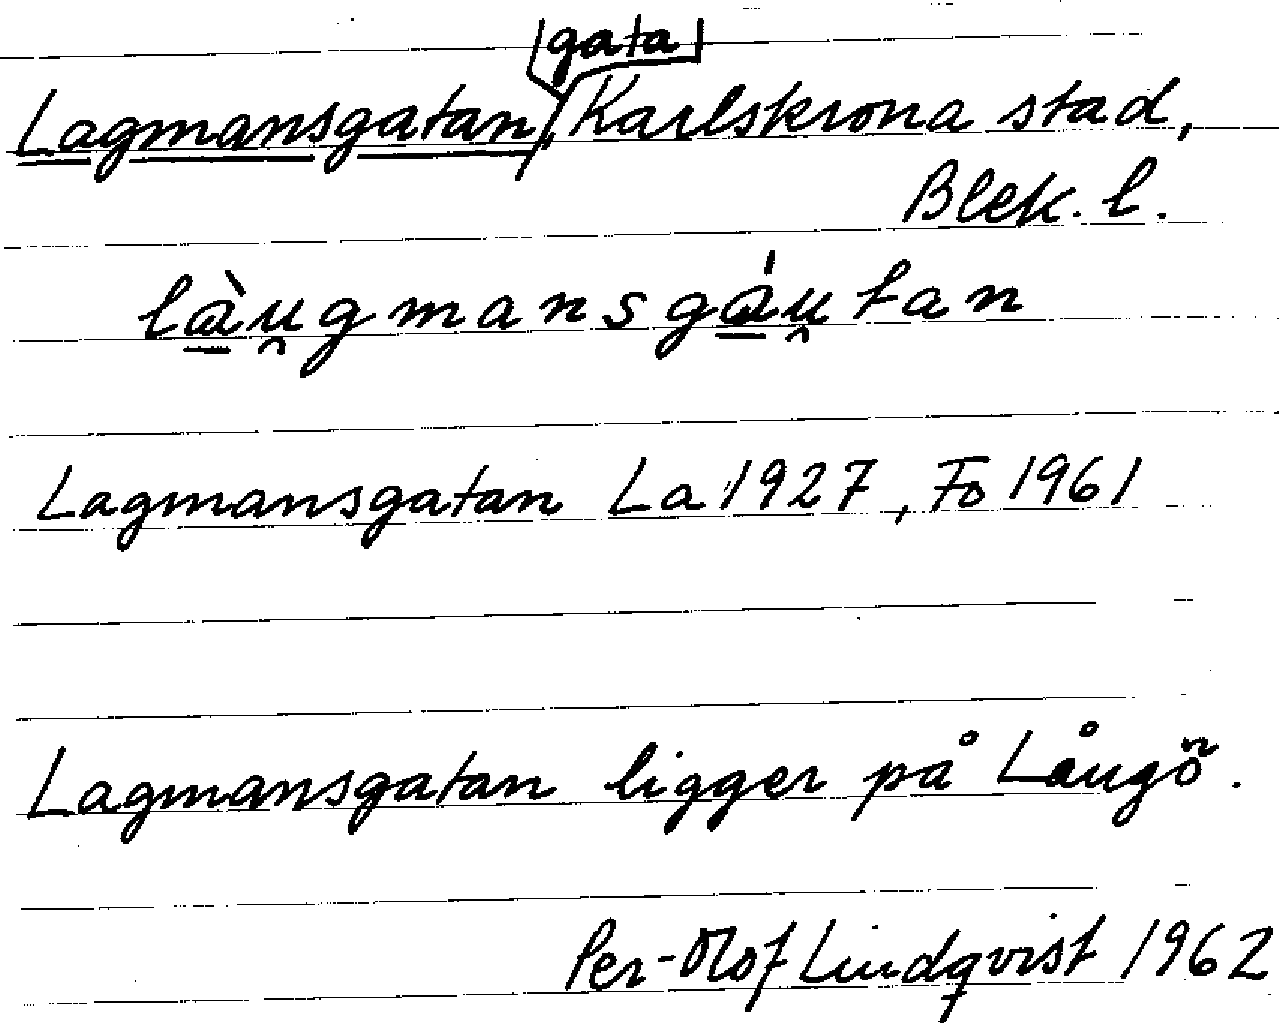 gata
Lagmansgatan, Karlskrona stad,
Blek. l.
là̠u̯gmansgá̠u̯tan
Lagmansgatan La 1927, Fo 1961
Lagmansgatan ligger på Långö.
Per-Olof Lindqvist 1962